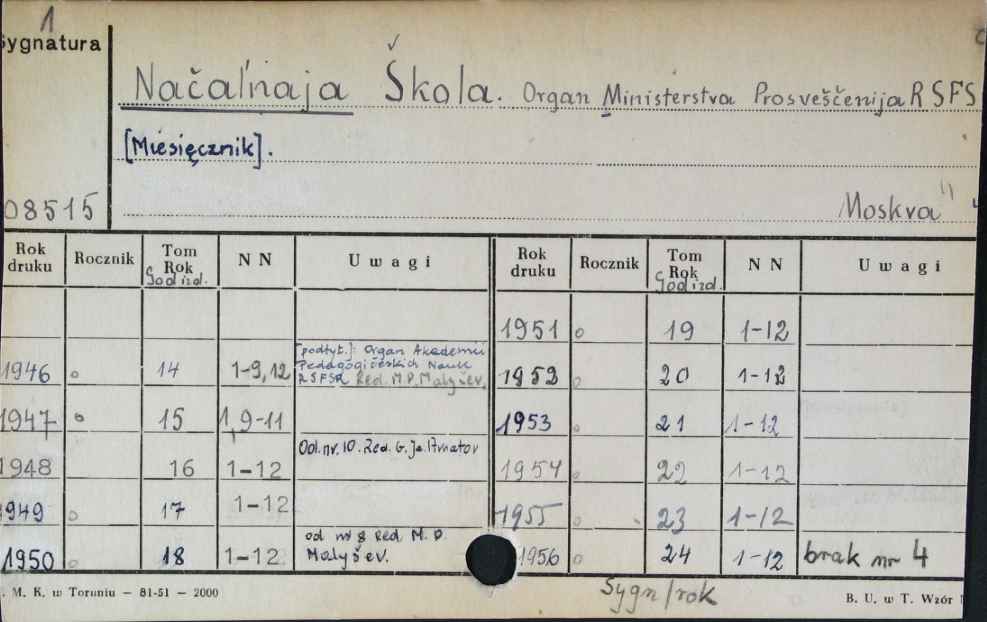 1
Sygnatura
Načaľnaja Škola. Organ Ministerstva Prosveščenija RSFS
[Miesięcznik].
08515
Moskva
Rok druku Rocznik Tom Rok God izd. NN Uwagi Rok druku Rocznik Tom Rok God izd. NN Uwagi
1951 o 19 1-12
1946 o 14 1-9, 12 [podtyt.]: Organ Akademii Pedagogičeskich Nauk RSFSR Red. M.P. Malyšev. 1952 o 20 1-12
1947 o 15 1, 9-11 1953 o 21 1-12
1948 16 1-12 Od. nr. 10. Red. G. Je. 1954 o 22 1-12
1949 o 17 1-12 1955 o 23 1-12
1950 o 18 1-12 od nr 8 Red. M. P. Malyšev. 1956 o 24 1-12 brak nr 4
. M. K. w Toruniu – 81-51 – 2000
Sygn/rok
B. U. w T. Wzór